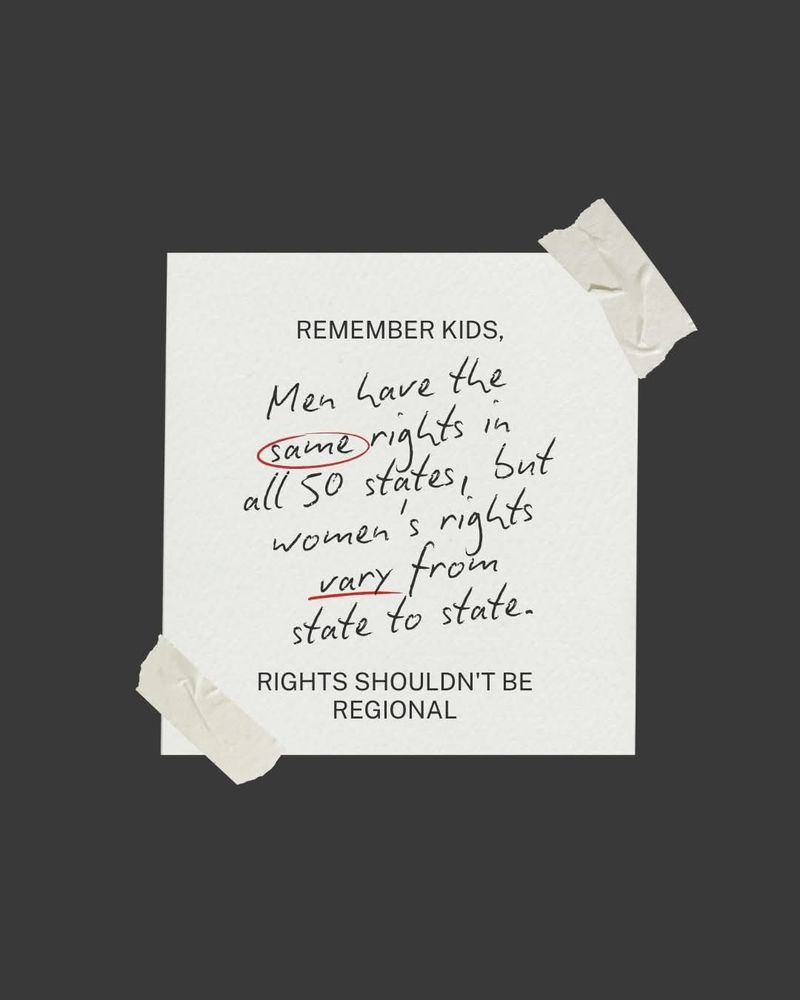 REMEMBER KIDS,
Men have the
same rights in
all 50 states, but
women's rights
vary from
state to state.
RIGHTS SHOULDN'T BE
REGIONAL